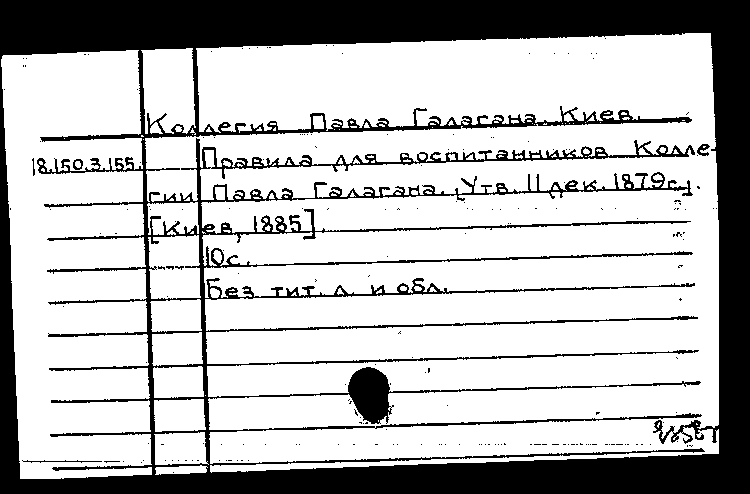 Коллегия Павла Галагана. Киев.
18.150.3.155. Правила для воспитанников Колле-
гии Павла Галагана. [Утв. 11 дек. 1879г.].
[Киев, 1885].
10с.
Без тит. л. и обл.